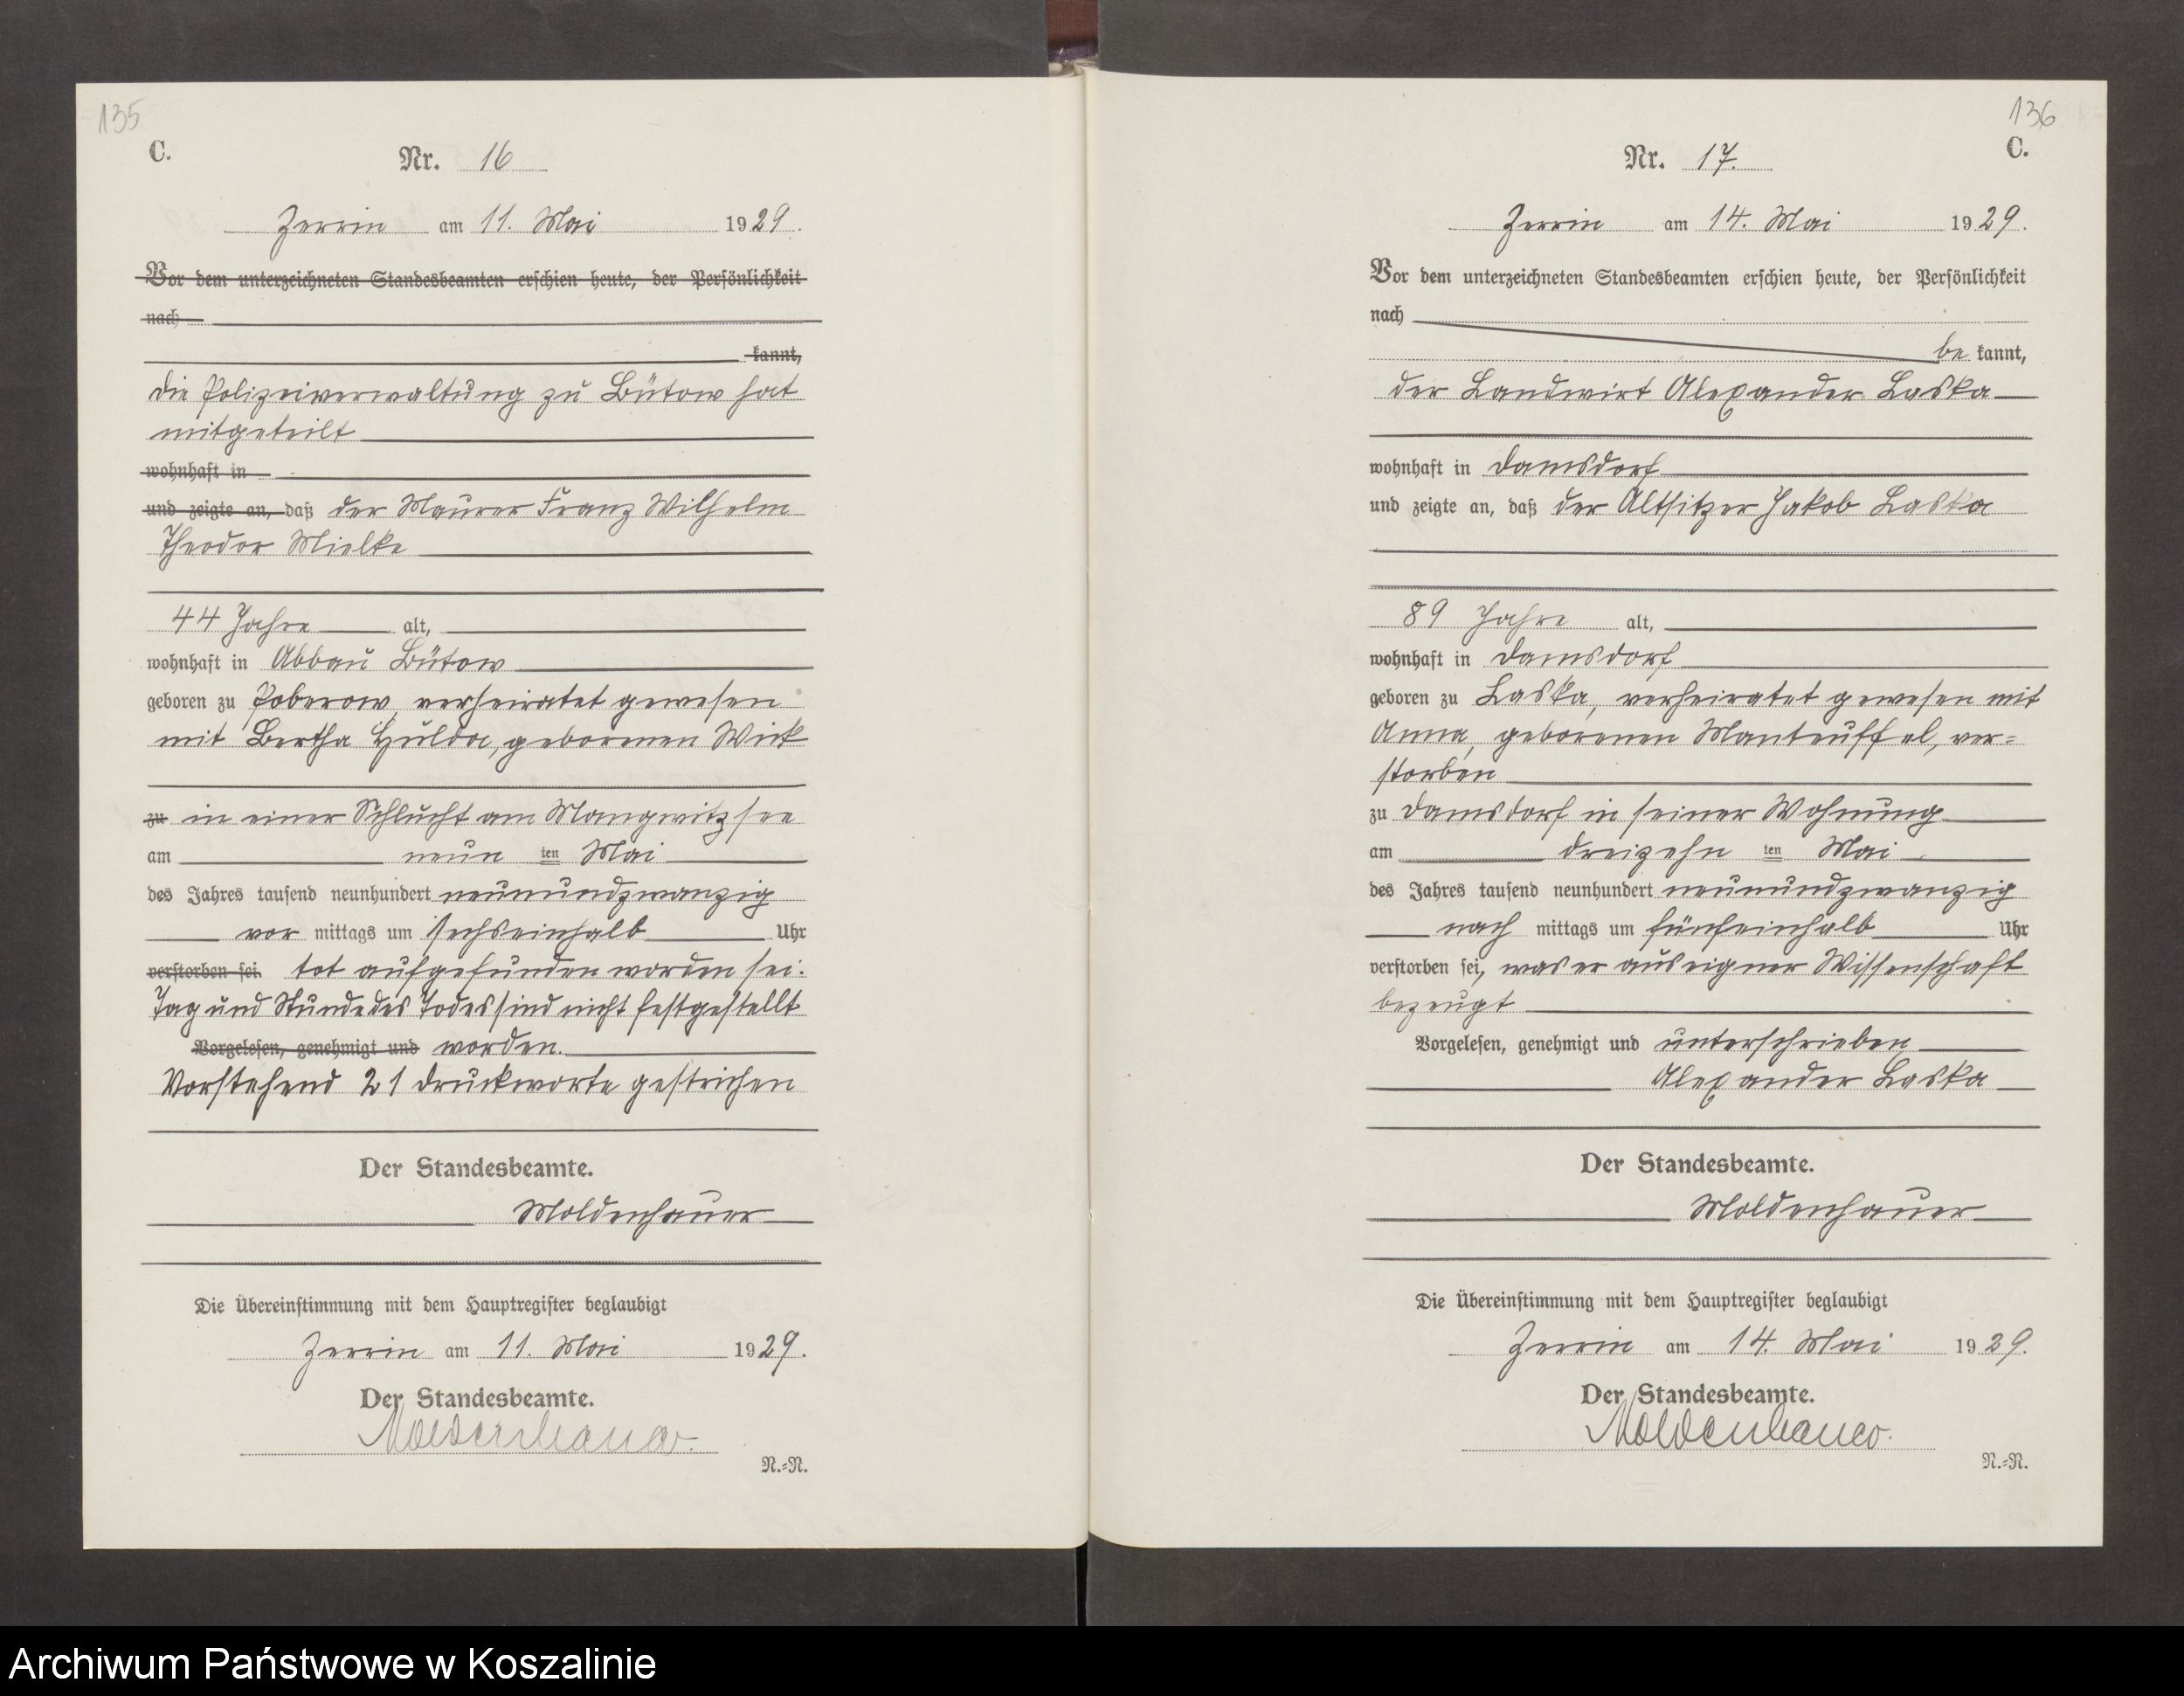 135
C.
Nr. 16
Zerrin am 11. Mai 1929.
Vor dem unterzeichneten Standesbeamten erschien heute, der Persönlichkeit
nach
kannt,
die Polizeiverwaltung zu Bütow hat
mitgeteilt
wohnhaft in
und zeigte an, daß der Maurer Franz Wilhelm
Theodor Mielke
44 Jahre alt,
wohnhaft in Abbau Bütow
geboren zu Poberow, verheiratet gewesen
mit Bertha Hulda, geborenen Wick
zu in einer Schlucht am Mangwitzsee
am neun ten Mai
des Jahres tausend neunhundert neunundzwanzig
vor mittags um sechseinhalb Uhr
verstorben sei. tot aufgefunden worden sei.
Tag und Stunde des Todes sind nicht festgestellt
Vorgelesen, genehmigt und worden.
Vorstehend 21 Druckworte gestrichen
Der Standesbeamte.
Moldenhauer
Die Übereinstimmung mit dem Hauptregister beglaubigt
Zerrin am 11. Mai 1929.
Der Standesbeamte.
Moldenhauer.
N.=N.
136
C.
Nr. 17.
Zerrin am 14. Mai 1929.
Vor dem unterzeichneten Standesbeamten erschien heute, der Persönlichkeit
nach
be kannt,
der Landwirt Alexander Laska
wohnhaft in Damsdorf
und zeigte an, daß der Altsitzer Jakob Laska
89 Jahre alt,
wohnhaft in Damsdorf
geboren zu Laska, verheiratet gewesen mit
Anna, geborenen Manteuffel, ver=
storben
zu Damsdorf in seiner Wohnung
am dreizehn ten Mai
des Jahres tausend neunhundert neunundzwanzig
nach mittags um fünfeinhalb Uhr
verstorben sei, was er aus eigner Wissenschaft
bezeugt
Vorgelesen, genehmigt und unterschrieben
Alexander Laska
Der Standesbeamte.
Moldenhauer
Die Übereinstimmung mit dem Hauptregister beglaubigt
Zerrin am 14. Mai 1929.
Der Standesbeamte.
Moldenhauer.
N.=N.
Archiwum Państwowe w Koszalinie